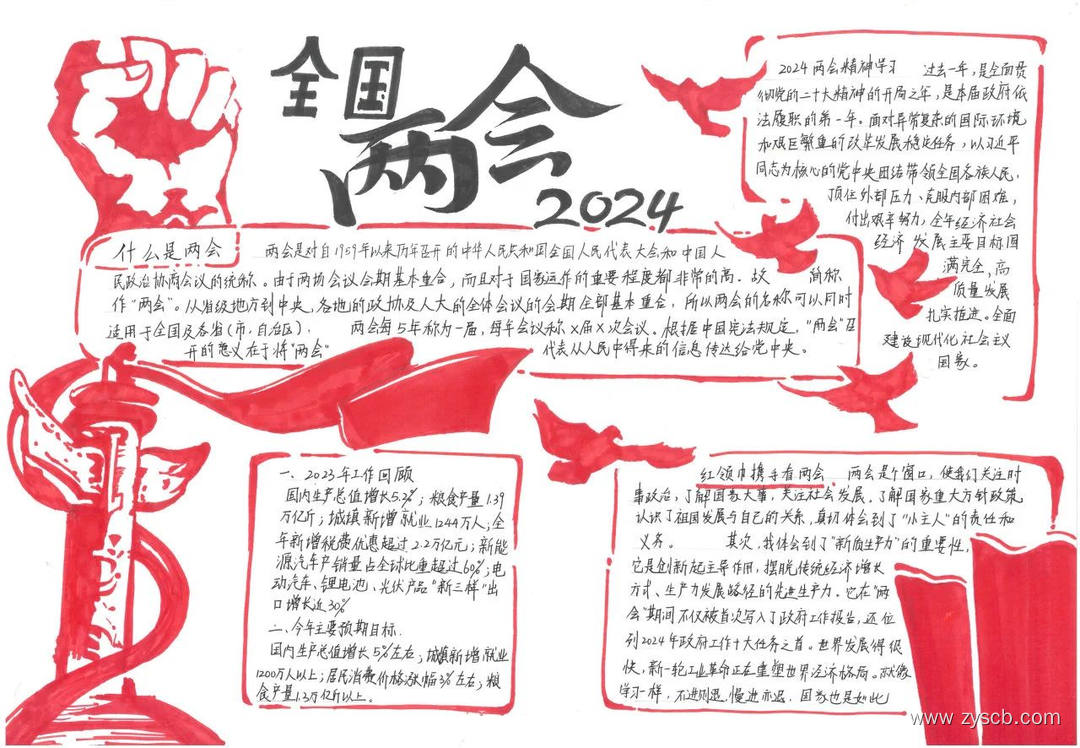 全国
两会
2024
2024两会精神学习 过去一年,是全面贯
彻党的二十大精神的开局之年,是本届政府依
法履职的第一年。面对异常复杂的国际环境
和艰巨繁重的改革发展稳定任务,以习近平
同志为核心的党中央团结带领全国各族人民,
顶住外部压力、克服内部困难,
付出艰辛努力,全年经济社会
经济发展主要目标圆
满完全,高
质量发展
扎实推进。全面
建设现代化社会主义
国家。
什么是两会 两会是对自1959年以来历年召开的中华人民共和国全国人民代表大会和中国人
民政治协商会议的统称。由于两场会议会期基本重合,而且对于国家运作的重要程度都非常的高。故 简称
作“两会”。从省级地方到中央,各地的政协及人大的全体会议的会期全部基本重合,所以两会的名称可以同时
适用于全国及各省(市、自治区)。 两会每5年称为一届,每年会议称X届X次会议。根据中国宪法规定。“两会”召
开的意义在于将“两会” 代表从人民中得来的信息传达给党中央。
一、2023年工作回顾
国内生产总值增长5.2%;粮食产量1.39
万亿斤;城镇新增就业1244万人;全
年新增税费优惠超过2.2万亿元;新能
源汽车产销量占全球比重超过60%;电
动汽车、锂电池、光伏产品“新三样”出
口增长近30%
二、今年主要预期目标.
国内生产总值增长5%左右;城镇新增就业
1200万人以上;居民消费价格涨幅3%左右;粮
食产量1.3万亿斤以上。
红领巾携手看两会 两会是个窗口,使我们关注时
事政治,了解国家大事,关注社会发展,了解国家重大方针政策
认识了祖国发展与自己的关系,真切体会到了“小主人”的责任和
义务。 其次,我体会到了“新质生产力”的重要性,
它是创新起主导作用,摆脱传统经济增长
方式、生产力发展路径的先进生产力。它在“两
会”期间不仅被首次写入了政府工作报告,还位
列2024年政府工作十大任务之首。世界发展得很
快,新一轮工业革命正在重塑世界经济格局。就像
学习一样,不进则退,慢进亦退.国家也是如此
www.zyscb.com